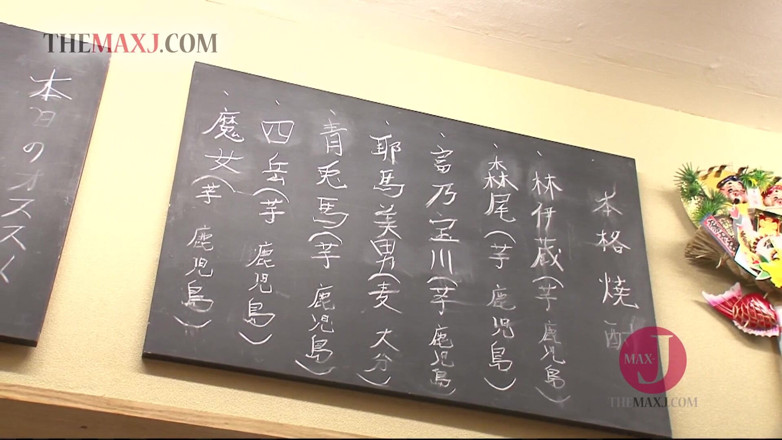 THEMAXJ.COM
本格焼酎
・林伊蔵(芋 鹿児島)
・森尾(芋 鹿児島)
・富乃宝川(芋 鹿児島)
・耶馬美男(麦 大分)
・青兎馬(芋 鹿児島)
・四岳(芋 鹿児島)
・魔女(芋 鹿児島)
本日のオススメ
MAX-J
THEMAXJ.COM